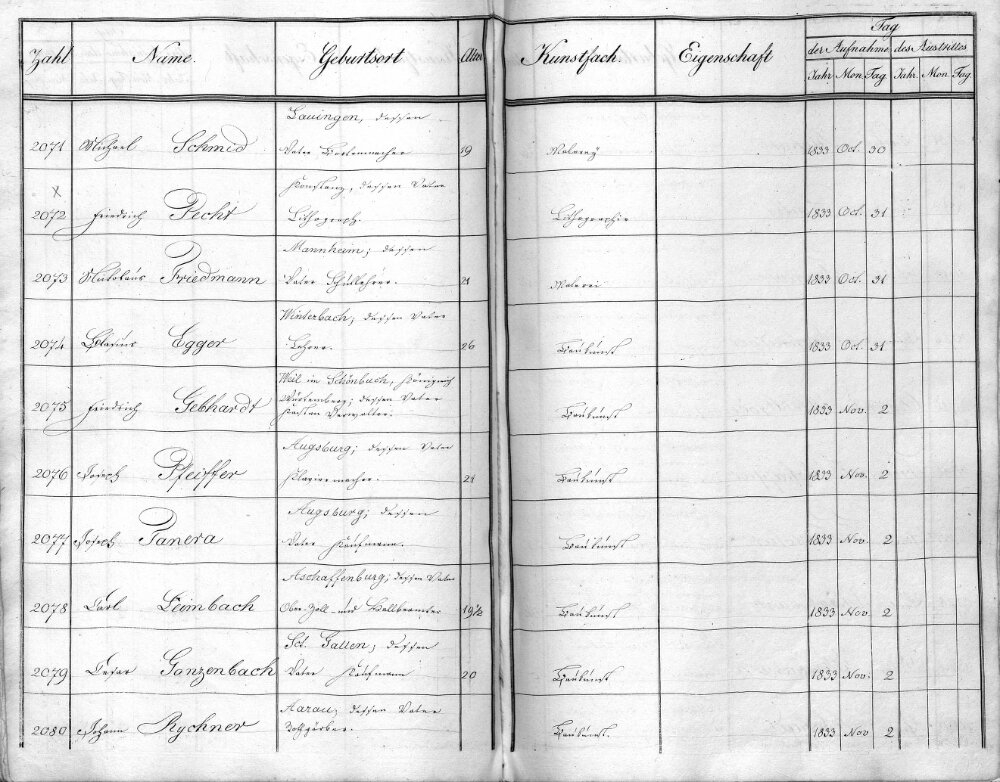 Zahl Name. Geburtsort Alter Kunstfach. Eigenschaft Tag
der Aufnahme des Austrittes
Jahr Mon. Tag Jahr. Mon. Tag.
Lauingen, dessen
2071 Michael Schmid Vater 19 Malerey 1833 Oct. 30
x Konstanz, dessen Vater
2072 Friedrich Pecht Lithograph. Lithographie 1833 Oct. 31
Mannheim; dessen
2073 Friedmann Vater Schullehrer. 21 Malerei 1833 Oct. 31
Winterbach; dessen Vater
2074 Egger Lehrer. 26 Baukunst 1833 Oct. 31
Weil im Schönbuch, Königreich
2075 Friedrich Gebhardt Würtemberg; dessen Vater Baukunst 1833 Nov. 2
Verwalter.
Augsburg; dessen Vater
2076 Joseph Pfeiffer Klaviermacher. 21 Baukunst 1833 Nov. 2
Augsburg; dessen
2077 Joseph Tanera Vater Kaufmann. Baukunst 1833 Nov. 2
Aschaffenburg; dessen Vater
2078 Carl Leimbach Ober-Zoll- und Hallbeamter 19½ Baukunst 1833 Nov. 2
Sct. Gallen; dessen
2079 Gonzenbach Vater Kaufmann 20 Baukunst 1833 Nov. 2
Aarau; dessen Vater
2080 Johann Rychner Rothgärber. Baukunst. 1833 Nov 2